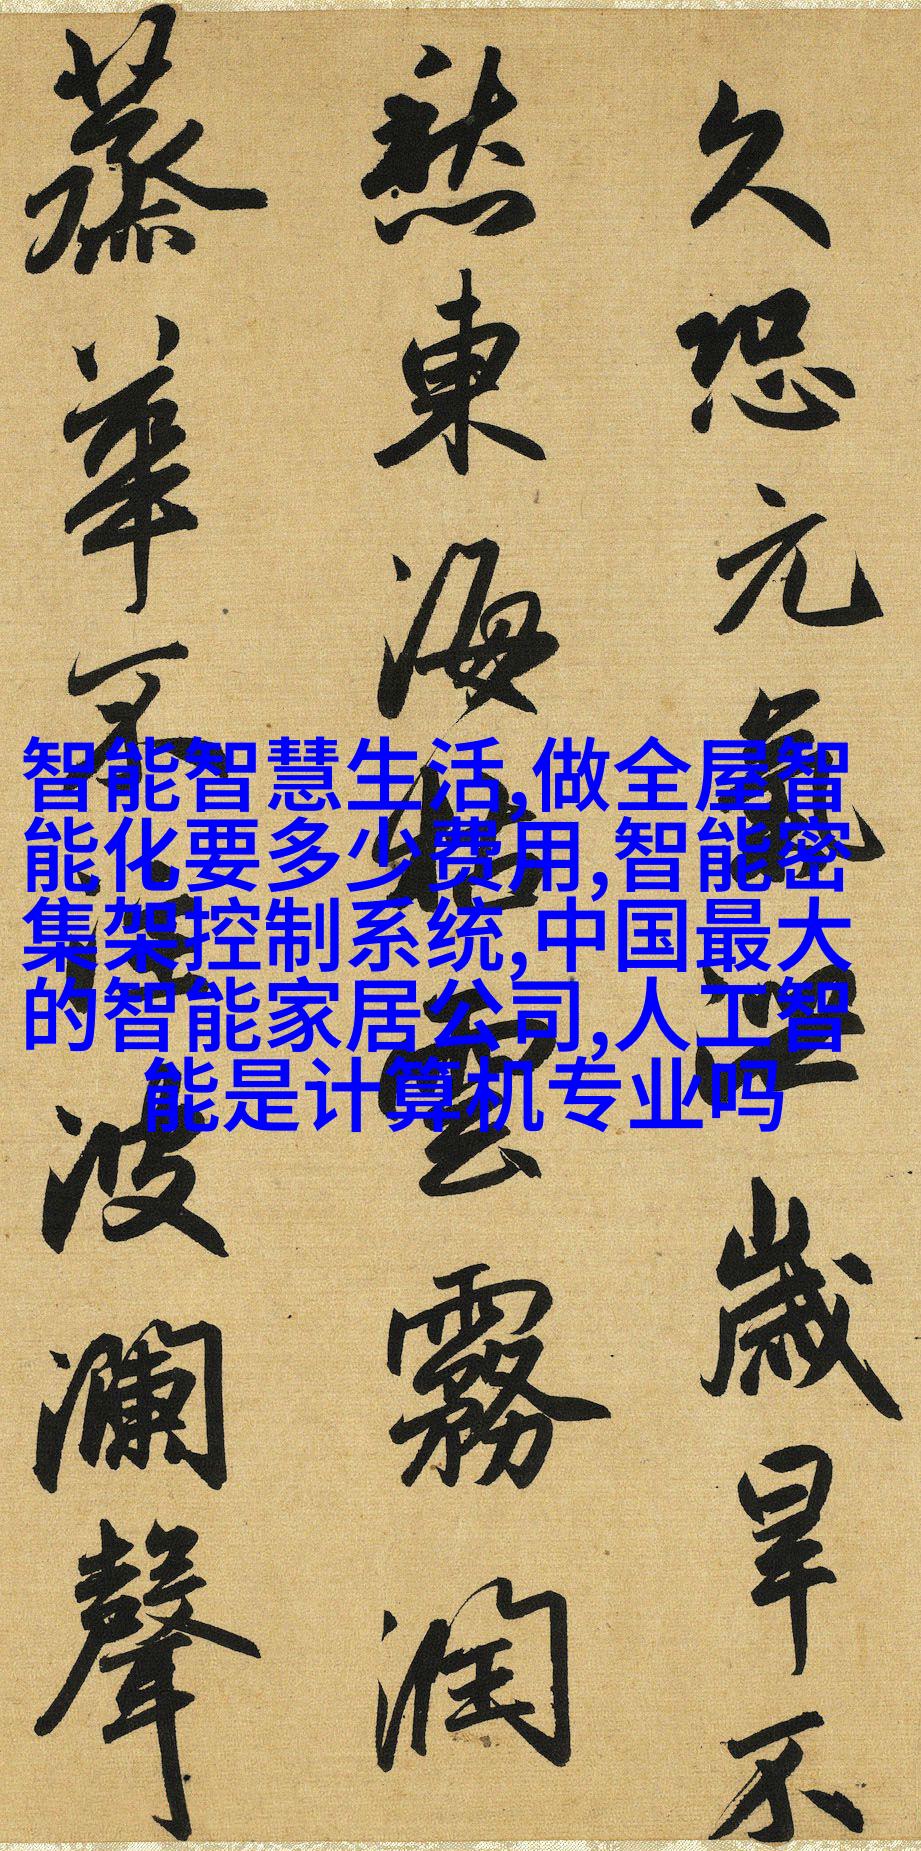 久恐元氣泄歲旱不
愁東海枯雲霧潤
蒸華不注波瀾聲
智能智慧生活,做全屋智
能化要多少费用,智能密
集架控制系统,中国最大
的智能家居公司,人工智
能是计算机专业吗